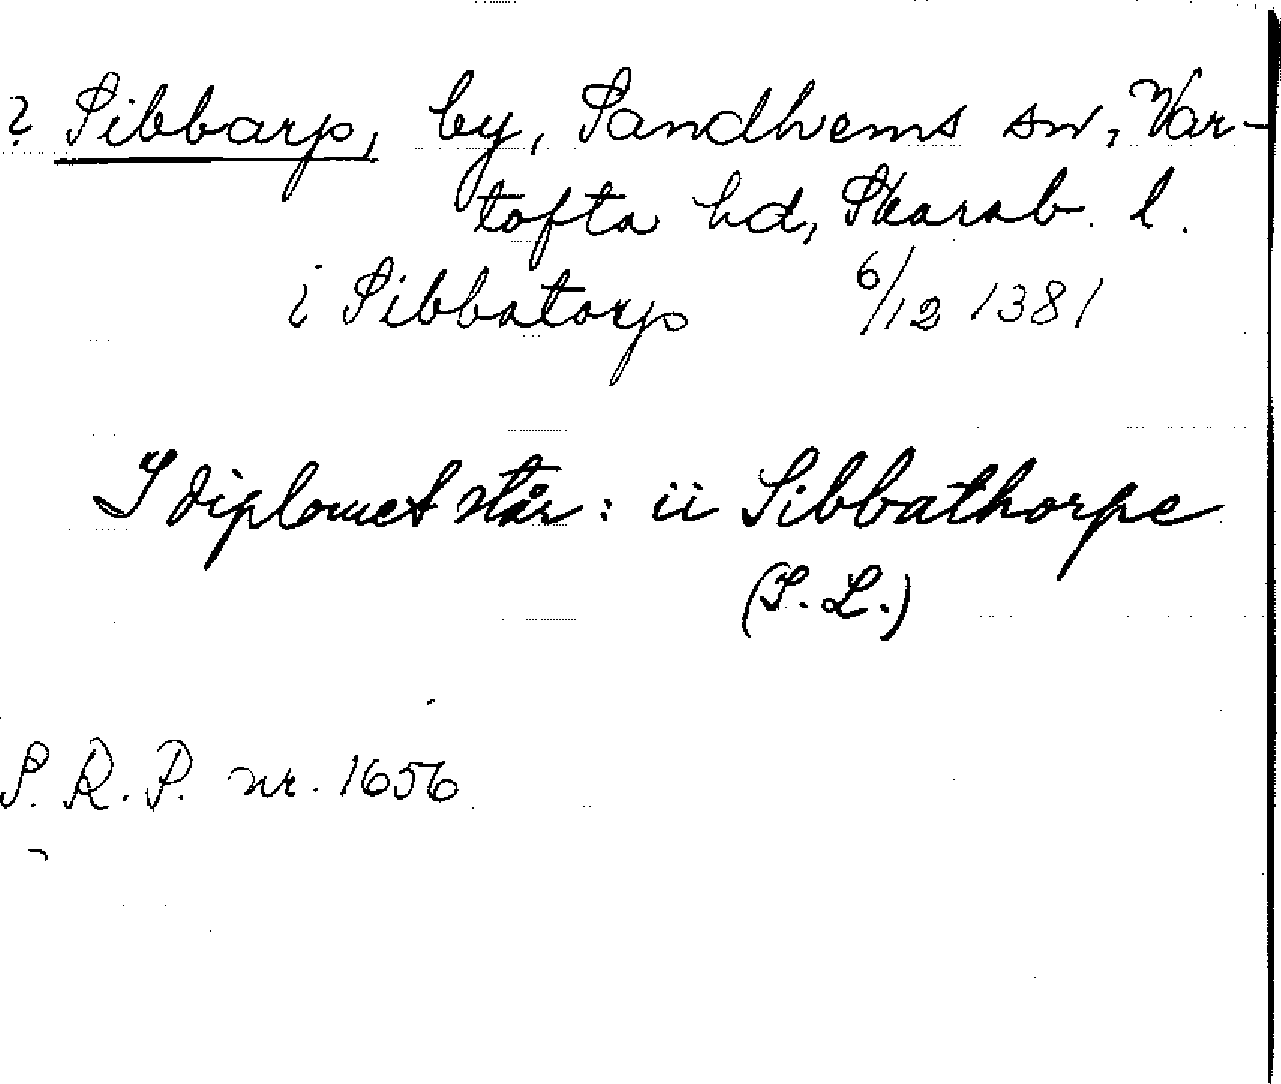 ? Sibbarp, by, Sandhems sn, Var-
tofta hd, Skarab. l.
i Sibbatorp 6/12 1381
I diplomet står: ii Sibbathorpe
(S. L.)
S. R. P. nr. 1656